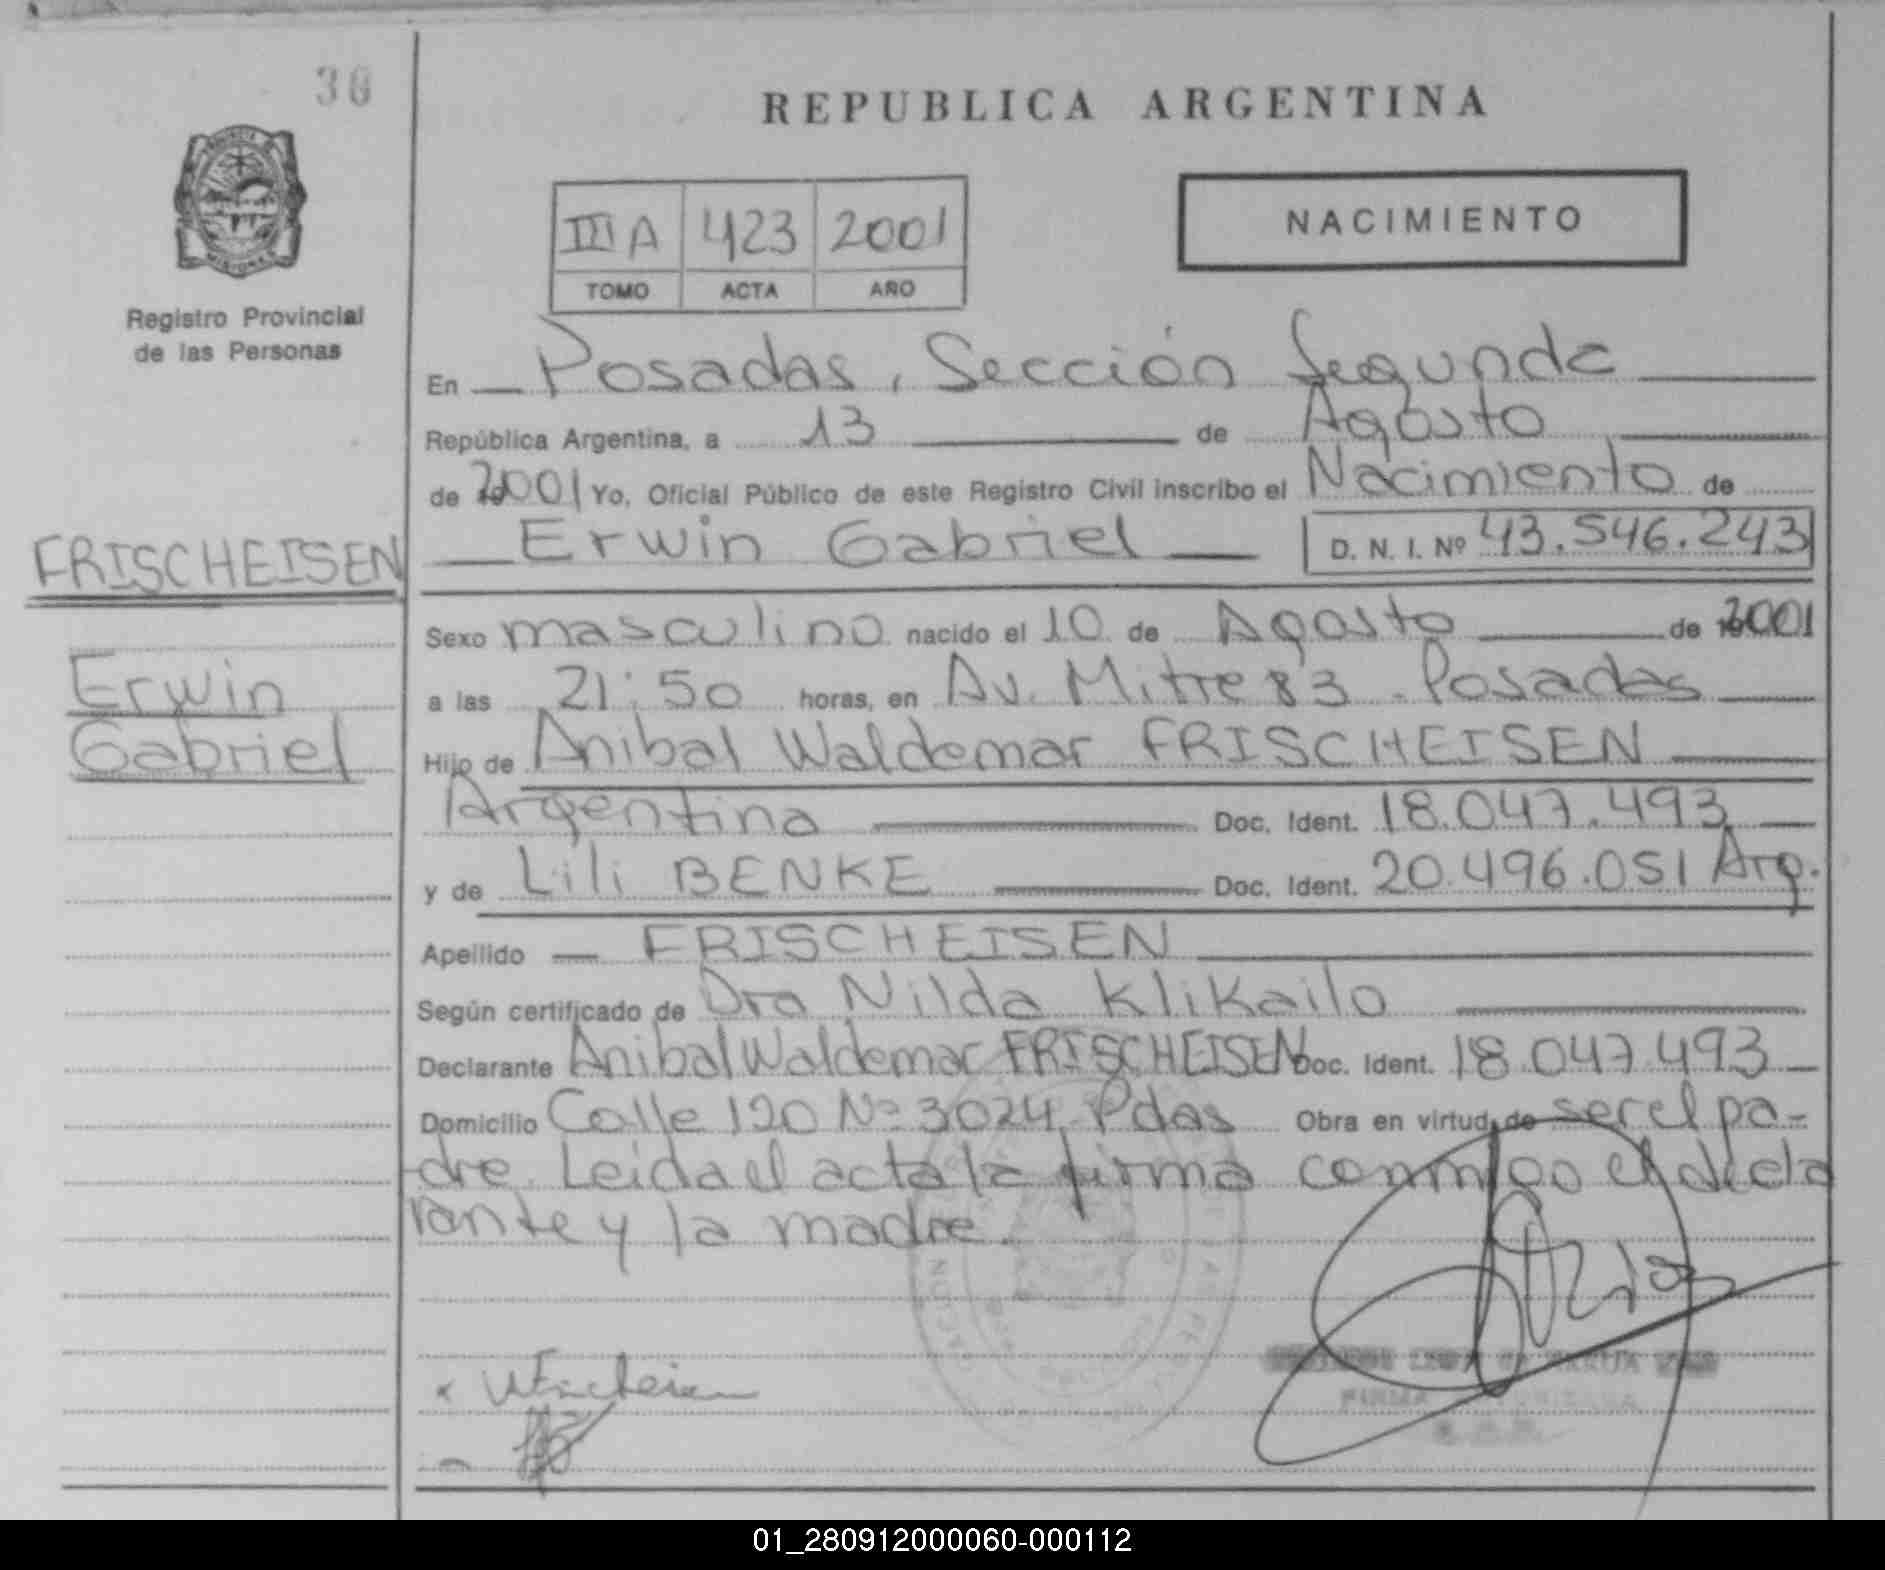 30
REPUBLICA ARGENTINA
PROVINCIA
MISIONES
Registro Provincial
de las Personas
III A 423 2001
TOMO ACTA AÑO
NACIMIENTO
En Posadas, Sección Segunda
República Argentina, a 13 de Agosto
de 2001 Yo, Oficial Público de este Registro Civil inscribo el Nacimiento de
Erwin Gabriel D. N. I. Nº 43.546.243
FRISCHEISEN
Erwin
Gabriel
Sexo masculino nacido el 10 de Agosto de 2001
a las 21:50 horas, en Av. Mitre 83 - Posadas
Hijo de Anibal Waldemar FRISCHEISEN
Argentina Doc. Ident. 18.047.493
y de Lili BENKE Doc. Ident. 20.496.051 Arg.
Apellido FRISCHEISEN
Según certificado de Dra Nilda Klikailo
Declarante Anibal Waldemar FRISCHEISEN Doc. Ident. 18.047.493
Domicilio Calle 120 Nº 3024 Pdas Obra en virtud de ser el pa-
dre. Leida el acta la firma conmigo el decla
rante y la madre.
FIRMA
01_280912000060-000112